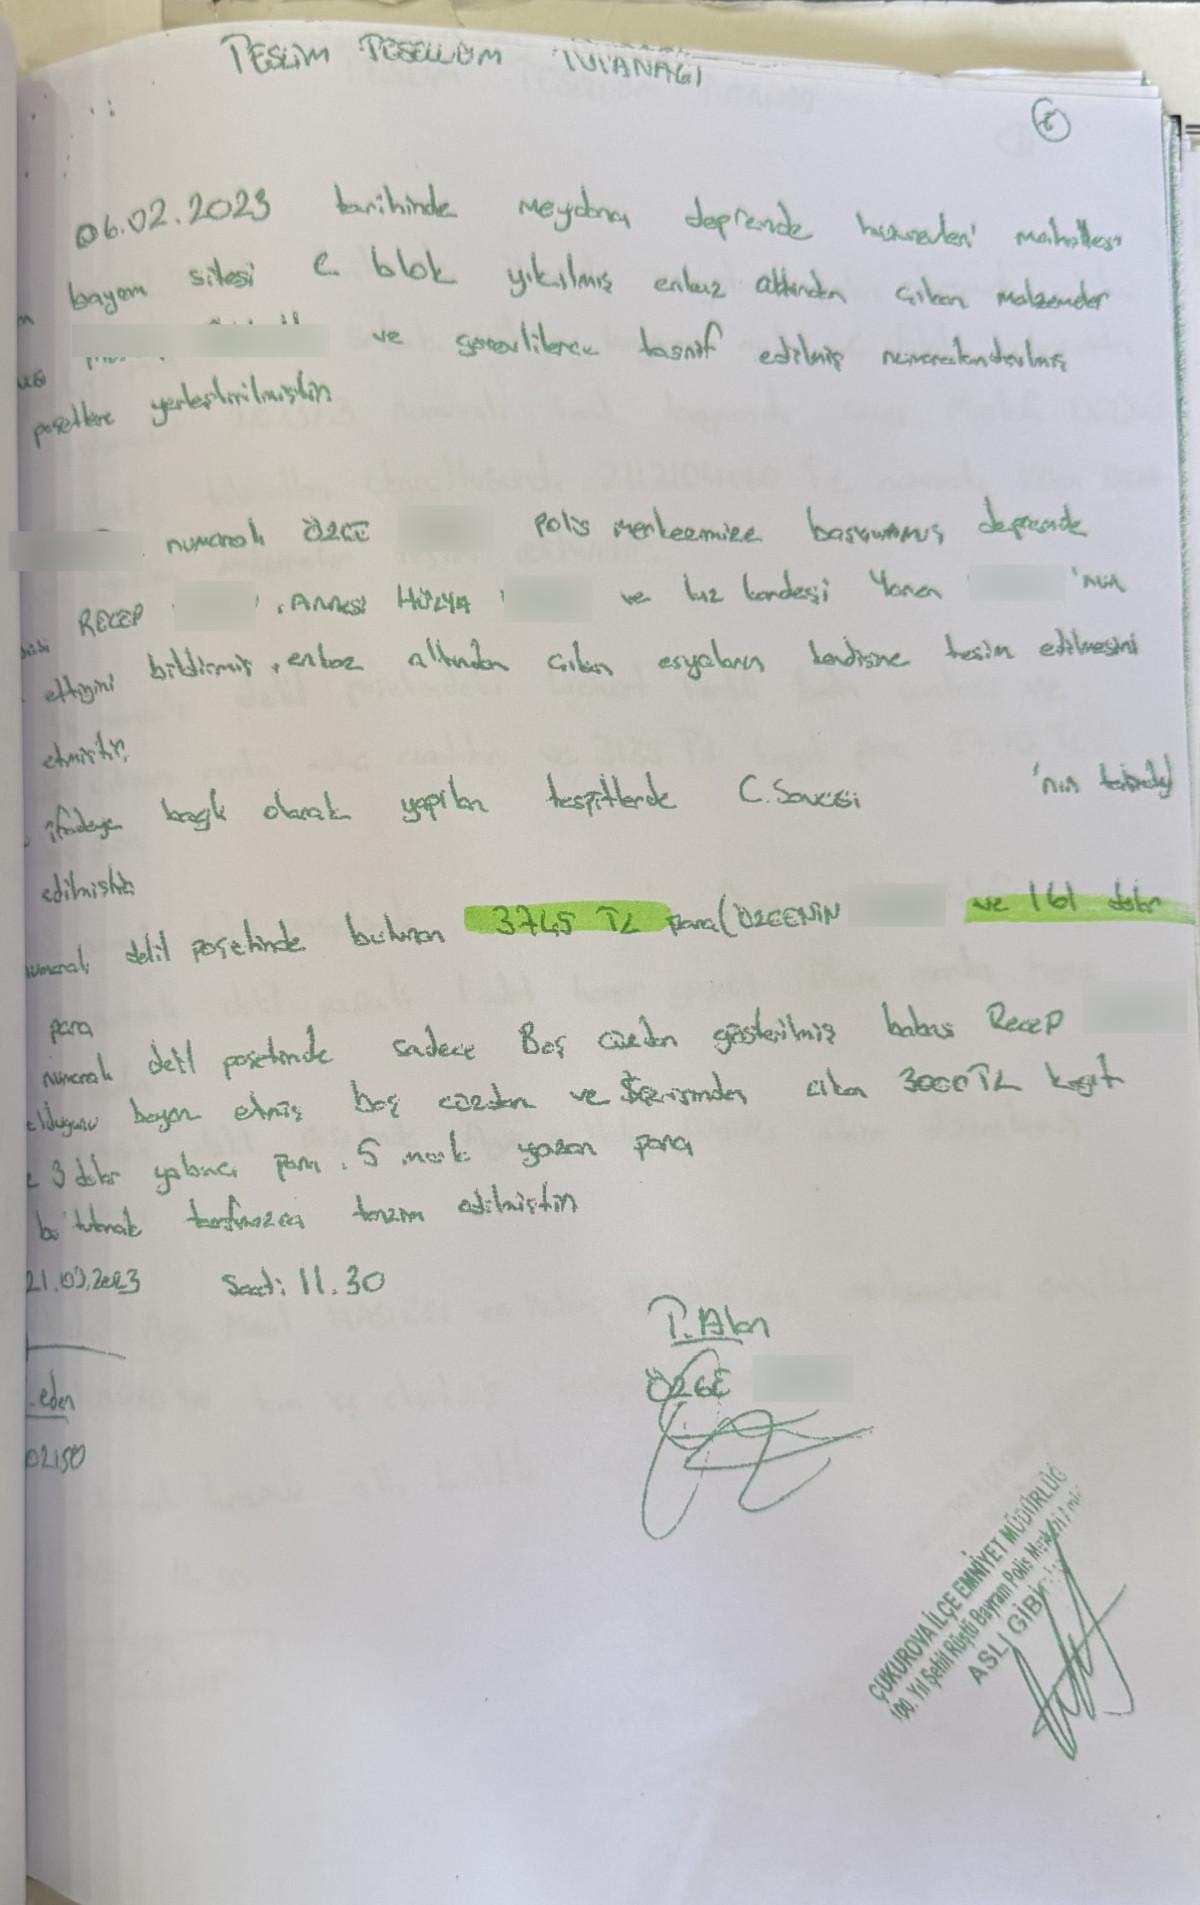 TESLİM TESELLÜM TUTANAGI
06.02.2023 tarihinde meydana depremde huzurevleri mahallesi
bayam sitesi C blok yıkılmış enkaz altından çıkan malzemeler
ve görevlilerce tasnif edilmiş numaralandırılmış
poşetlere yerleştirilmiştir
numaralı ÖZGE Polis merkezimize başvurmuş depremde
RECEP , ANNESİ HÜLYA ve kız kardeşi Yaren 'nın
ettiğini bildirmiş, enkaz altından çıkan eşyaların kendisine teslim edilmesini
etmiştir.
ifadeye bağlı olarak yapılan tespitlerde C.Savcısı 'nın
edilmiştir
delil poşetinde bulunan 3745 TL para (ÖZGENİN ve 161 dolar
para
delil poşetinde sadece Boş cüzdan gösterilmiş babası Recep
olduğunu beyan etmiş boş cüzdan ve içerisinden çıkan 3000 TL kağıt
3 dolar yabancı para, 5 mark yazan para
bu tutanak tarfımızca tanzim edilmiştir
Saat: 11.30
T. Alan
ÖZGE
eden
02150
ÇUKUROVA İLÇE EMNİYET MÜDÜRLÜĞ
100. Yıl Şehit Rüştü Bayram Polis Merkezi Amir
ASLI GİBİ